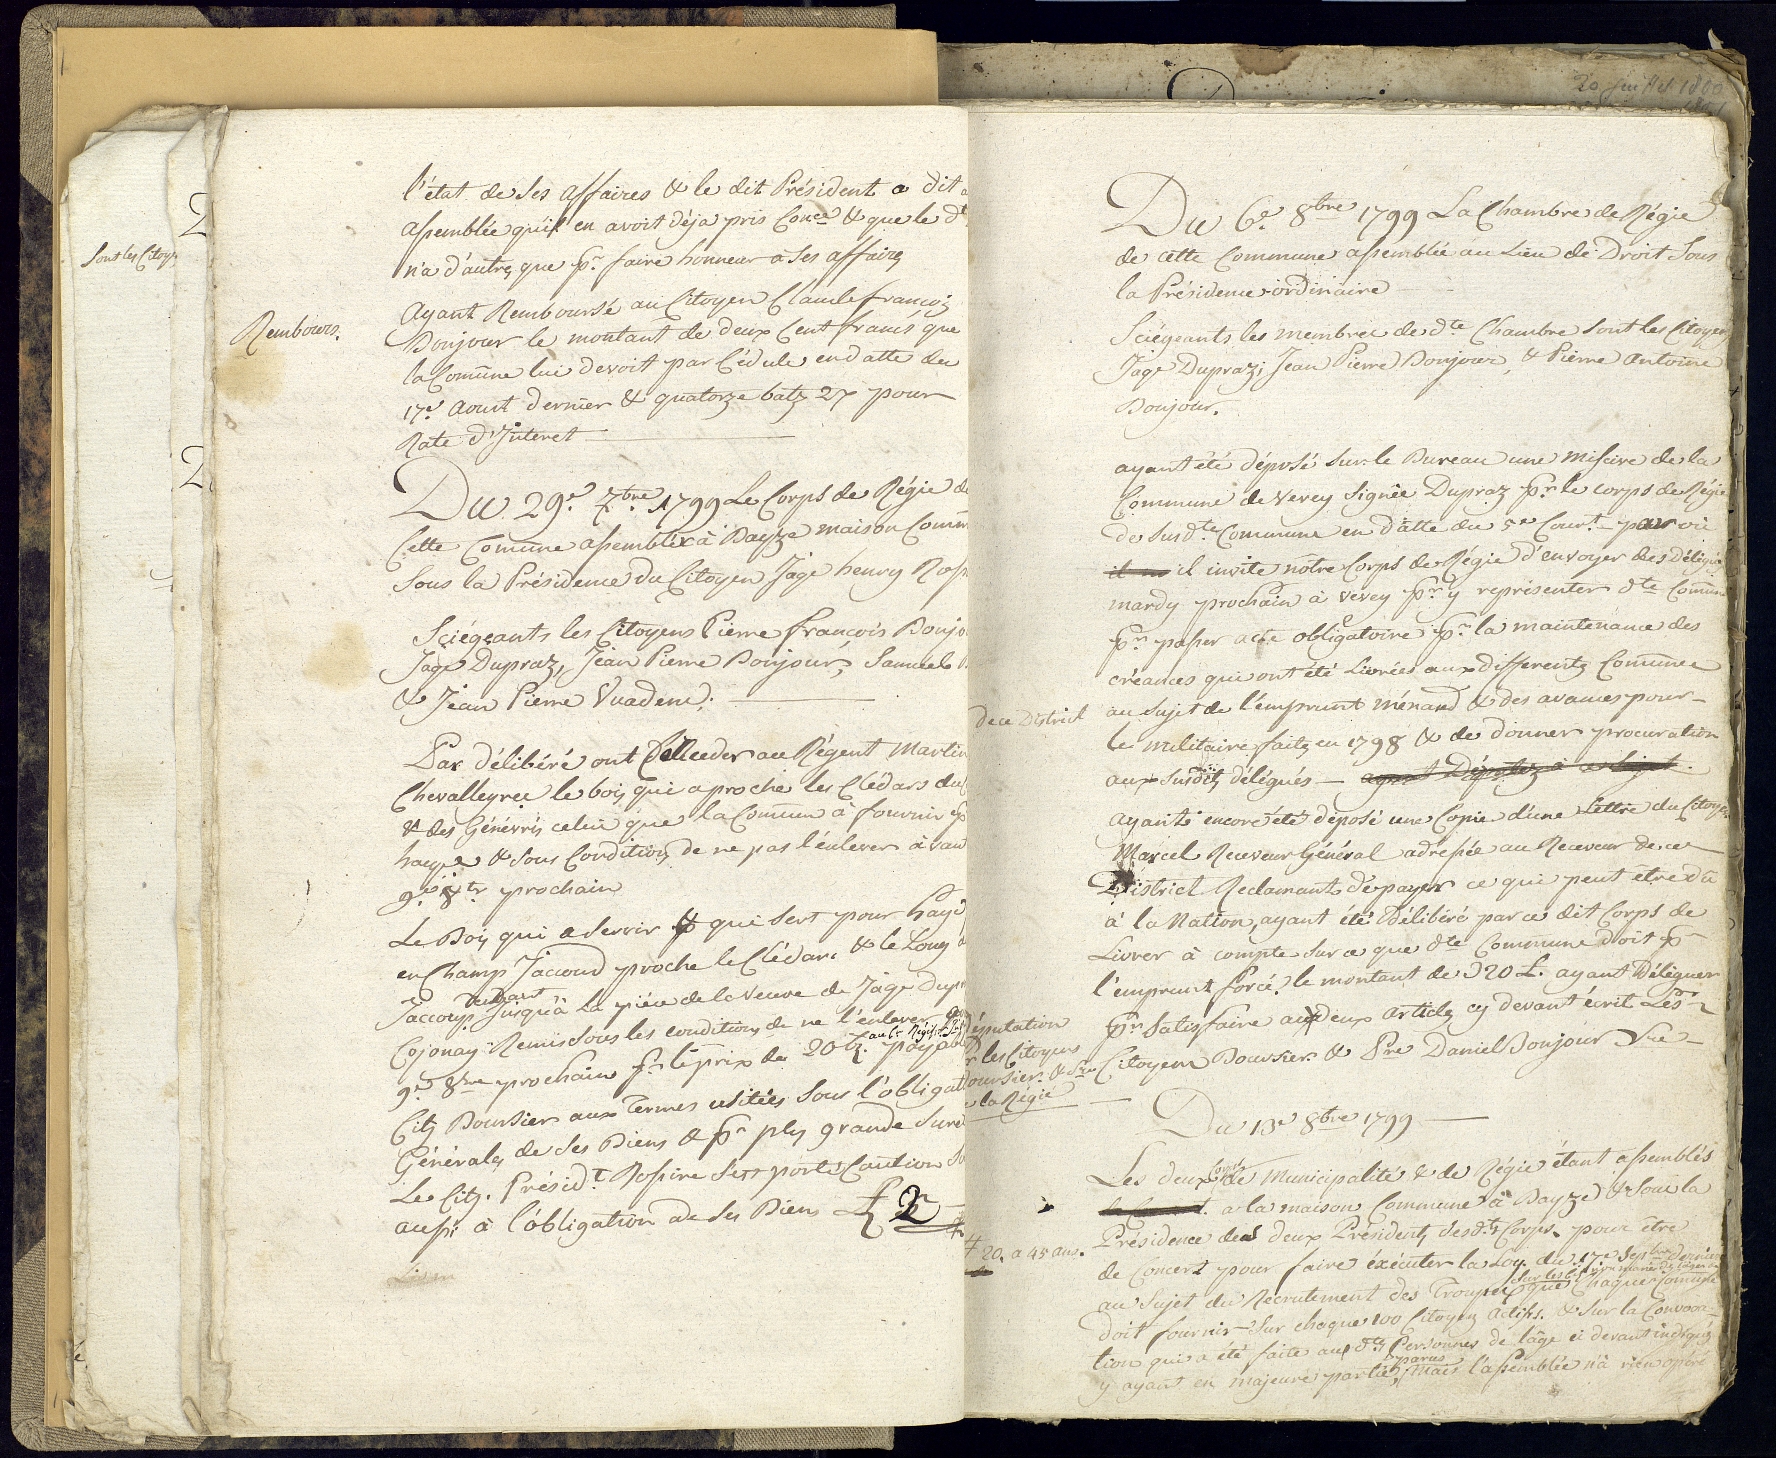 Sont les Citoy
l'état de Ses affaires & le dit Président a dit a
assemblée qu'il en avoit déja pris Con.ce & que le d.t
n'a d'autres que p.r faire honneur à Ses affaires
Rembours.
Ayant Remboursé au Citoyen Claude francois
Bonjour le montant de deux Cent francs que
la Comune lui devoit par Cédule en datte du
17.e Aoust dernier & quatorze batz 2x pour
Rate d'Interet
Du 29.e 7.bre 1799 Le Corps de Régie de
Cette Comune assemblée à Bayze maison Comm
Sous la Présidence du Citoyen Jâqe henry Ross
Sciégeants les Citoyens Pierre francois Bonjo
Jâqe Dupraz, Jean Pierre Bonjour, Samuel B
& Jean Pierre Vuadene.
Par délibéré ont Cedé au Régent Martin
Chevalleyree le bois qui aproche les Clédars du
& des Génévris celui que la Comune à fournir p
haye & Sous Condition de ne pas l'enlever à van
9.e 8.br prochain
Le Bois qui a Servir & que Sert pour haye
en Champ Jaccoud proche le Clédar & le Long d
Jaccoup tendant Jusqu'à la piéce de la Veuve de Jâqe Dup
Cojonay Remis Sous les conditions de ne l'enlever que
9.e 8.bre prochain p.r le prix de 20 bz. payable
au Cit Boursier aux Termes usitées Sous l'obligat
Générale de Ses Biens & p.r plus grande Sure
Le Cit. Présid.t Rossire Sest porté Caution So
aussi à l'obligation de Ses Biens £ 2
20 Juillet 1800
Du 6.e 8bre 1799 La Chambre de Régie
de cette Commune assemblée au Lieu de Droit Sous
la Présidence ordinaire
Sciégeants les membres de d.te Chambre Sont les Citoyens
Jâqe Dupraz, Jean Pierre Bonjour, & Pierre Antoine
Bonjour.
ayant été déposé Sur le Bureau une Missive de la
Commune de Vevey Signée Dupraz p.r le corps de Régie
de Susd.te Commune en datte du 5.e Cour.t par où
il invite nôtre Corps de Régie d'envoyer des Délégué
mardy prochain à Vevey p.r y représenter d.te Commune
p.r passer acte obligatoire p.r la maintenance des
créances qui ont été Livrées aux differents Communes
de ce District
au Sujet de l'emprunt ménard & des avances pour
le militaire faites en 1798 & de donner procuration
aux Susdits délégués — ayant Députez à ce Sujet.
ayante encore été déposé une Copie d'une Lettre du Citoyen
Marcel Receveur Général adressée au Receveur de ce
District Reclamant de payer ce qui peut être dû
à la Nation, ayant été Délibéré par ce dit Corps de
Livrer à compte Sur ce que d.te Commune doit p.r
l'emprunt forcé le montant de 320 £. ayant Déléguer
p.r Satisfaire aux deux articles cy devant écrit Les
Citoyens Boursier & P.re Daniel Bonjour
Députation
r les Citoyens
oursier & S.re
e la Régie
Du 13.e 8bre 1799
Les deux Corps de Municipalité & de Régie étant assemblés
a la maison Commune à Bayze & Sous la
Présidence des deux Présidents desd.ts Corps. pour être
20. a 45 ans.
de Concert pour faire éxécuter la Loy du 17.e Sept.bre dernier
au Sujet du Recrutement des Troupes que chaque Comune
doit fournir Sur chaque 100 Citoyens actifs. & Sur la Convoca-
tion qui a été faite aux d.ts Personnes de lâge ci devant indiqué
y ayant en majeure partie parus, Mais l'assemblée n'a rien opéré